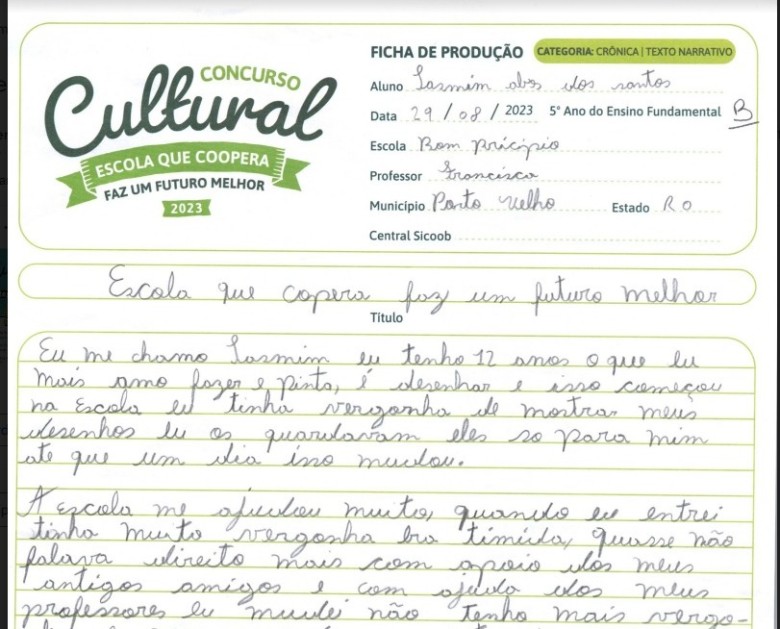 CONCURSO
Cultural
ESCOLA QUE COOPERA
FAZ UM FUTURO MELHOR
2023
FICHA DE PRODUÇÃO CATEGORIA: CRÔNICA | TEXTO NARRATIVO
Aluno dos santos
Data 29/08/2023 5º Ano do Ensino Fundamental B
Escola Bom
Professor Francisca
Município Porto Velho Estado RO
Central Sicoob
Escola que copera faz um futuro melhor
Título
Eu me chamo Iasmim eu tenho 12 anos o que eu
mais amo fazer e pinta, é desenhar e isso começou
na Escola eu tinha vergonha de mostrar meus
desenhos eu os guardavam eles so para mim
ate que um dia isso mudou.
A escola me ajudou muito, quando eu entrei
tinha muito vergonha era timida, quasse não
falava direito mais com apoio dos meus
antigos amigos e com ajuda dos meus
professores eu mudei não tenho mais vergo-